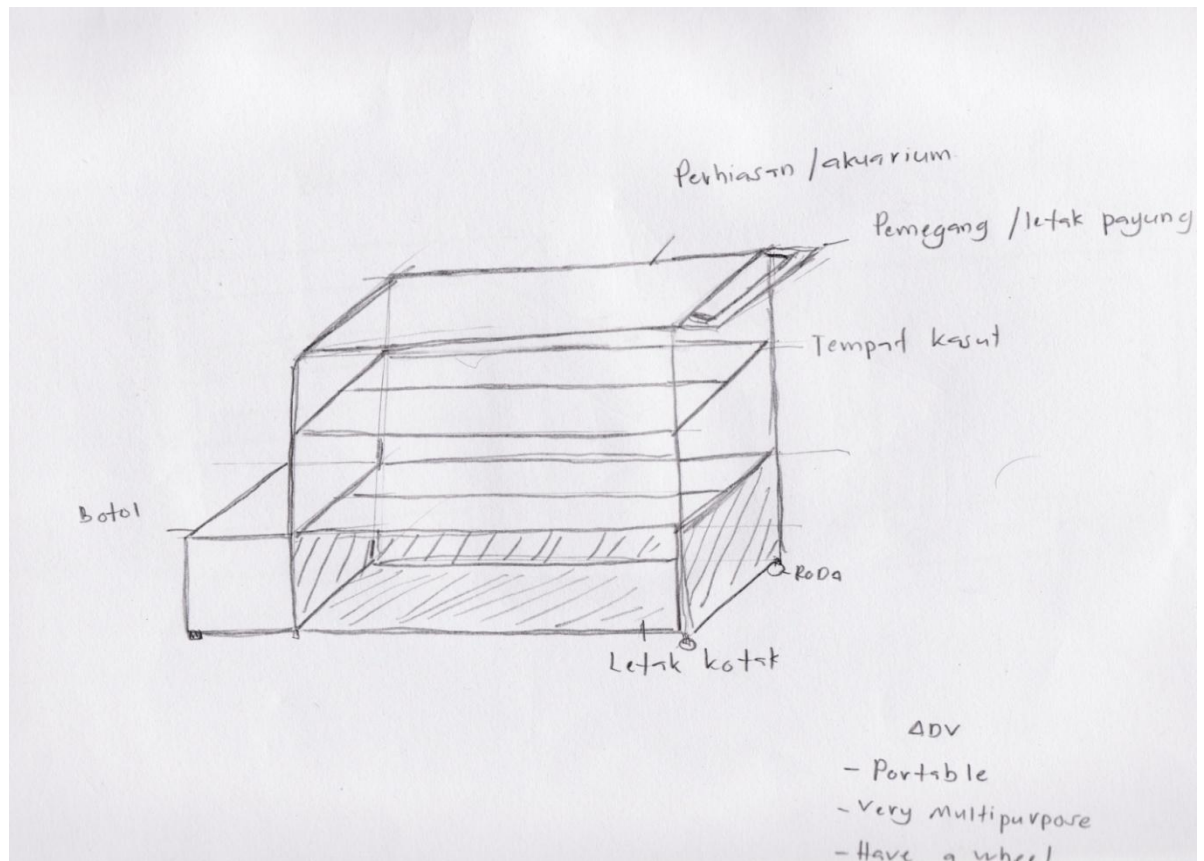 Perhiasan /akuarium
Pemegang /letak payung
Tempat kasut
Botol
RODA
Letak kotak
ADV
- Portable
- Very multipurpose
- Have a wheel